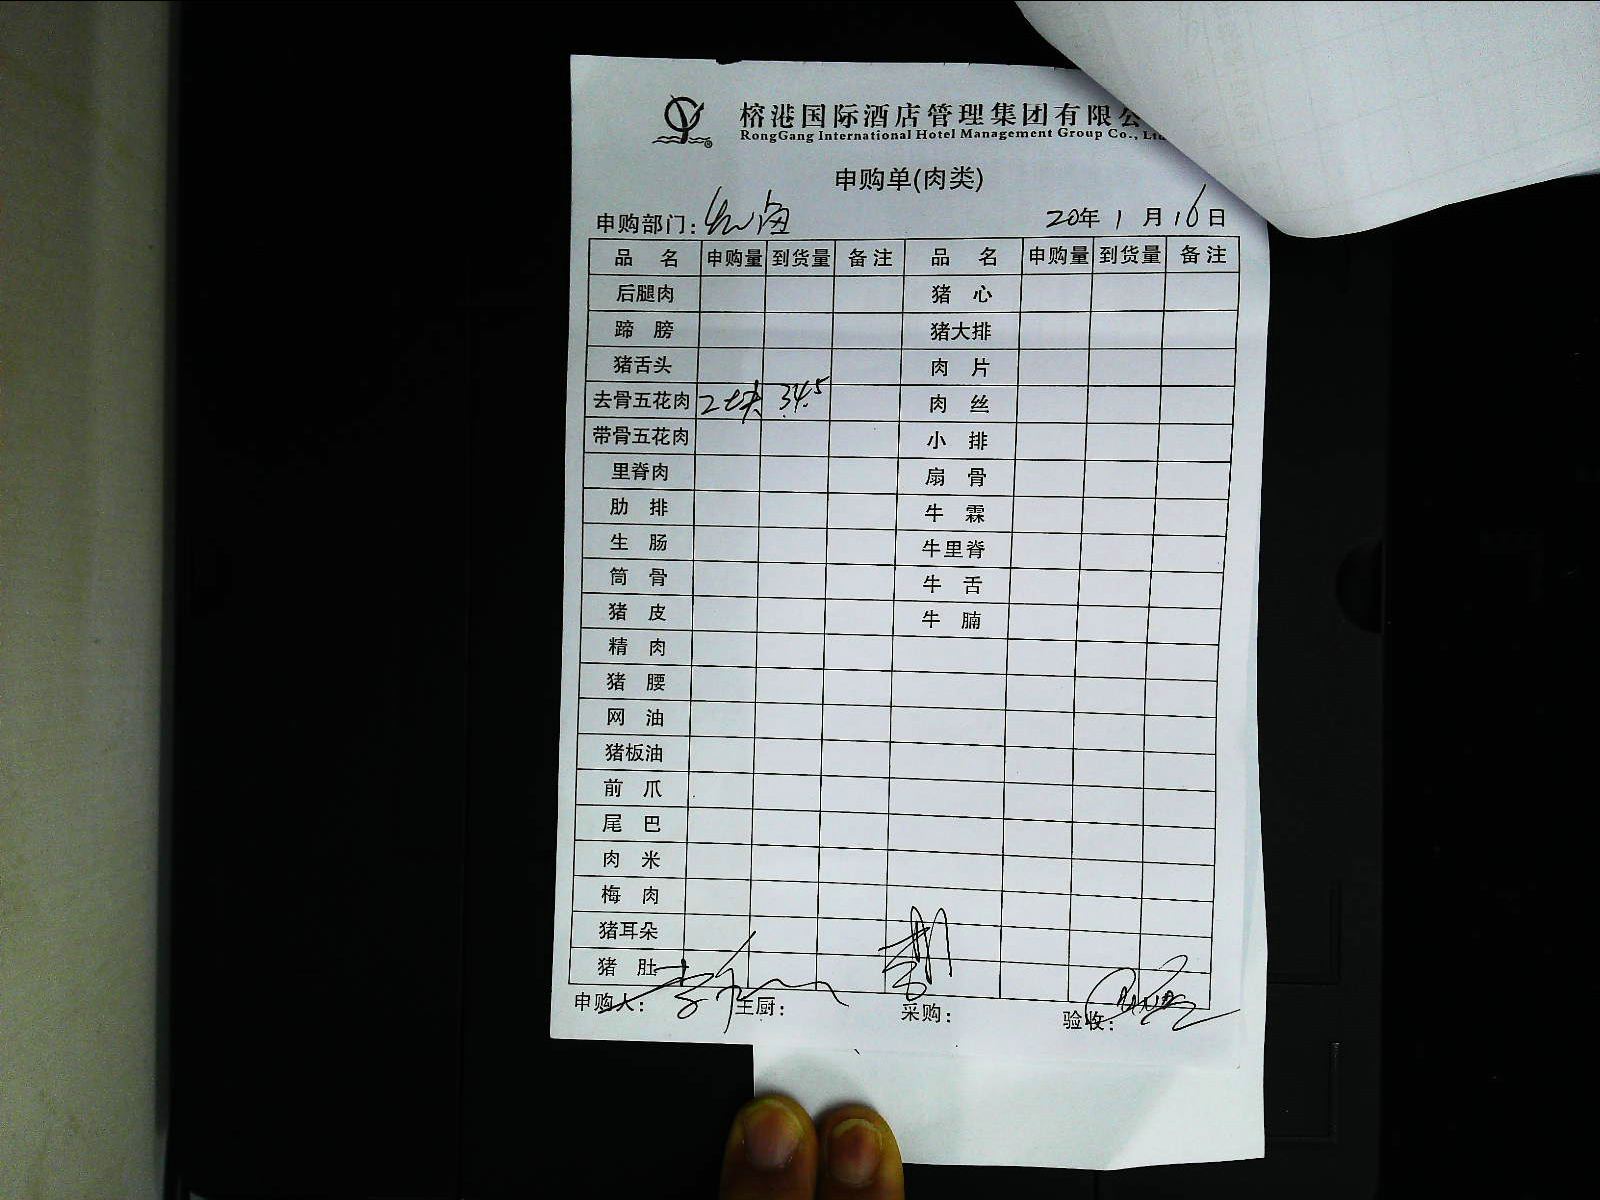 榕港国际酒店管理集团有限公
RongGang International Hotel Management Group Co., Ltd
申购单(肉类)
申购部门: 20年 1 月 16 日
品 名 申购量 到货量 备注 品 名 申购量 到货量 备注
后腿肉 猪 心
蹄 膀 猪大排
猪舌头 肉 片
去骨五花肉 2块 34.5 肉 丝
带骨五花肉 小 排
里脊肉 扇 骨
肋 排 牛 霖
生 肠 牛里脊
筒 骨 牛 舌
猪 皮 牛 腩
精 肉
猪 腰
网 油
猪板油
前 爪
尾 巴
肉 米
梅 肉
猪耳朵
猪 肚
申购人: 主厨: 采购: 验收: